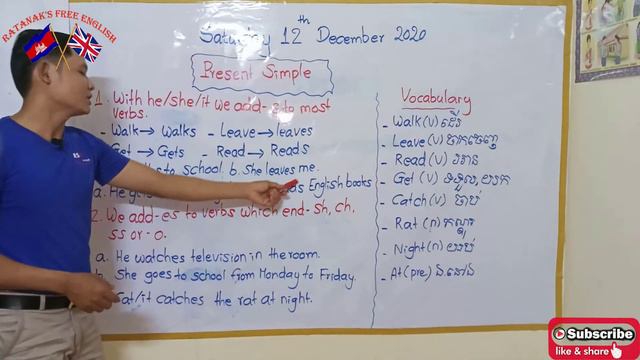 RATANAK'S FREE ENGLISH
Saturday 12th December 2020
Present Simple
1. With he/she/it we add -s to most
verbs.
- Walk → Walks - Leave → leaves
Get → Gets - Read → Reads
to school. b. She leaves me.
a. He English books
2. We add -es to verbs which end -sh, ch,
ss or -o.
a. He watches television in the room.
b. She goes to school from Monday to Friday.
Cat/it catches the rat at night.
Vocabulary
- Walk (v) ដើរ
- Leave (v) ចាកចេញ
- Read (v) អាន
- Get (v) ទទួល, យក
- Catch (v) ចាប់
- Rat (n) កណ្ដុរ
- Night (n) យប់
- At (pre) នៅ
Subscribe
like & share